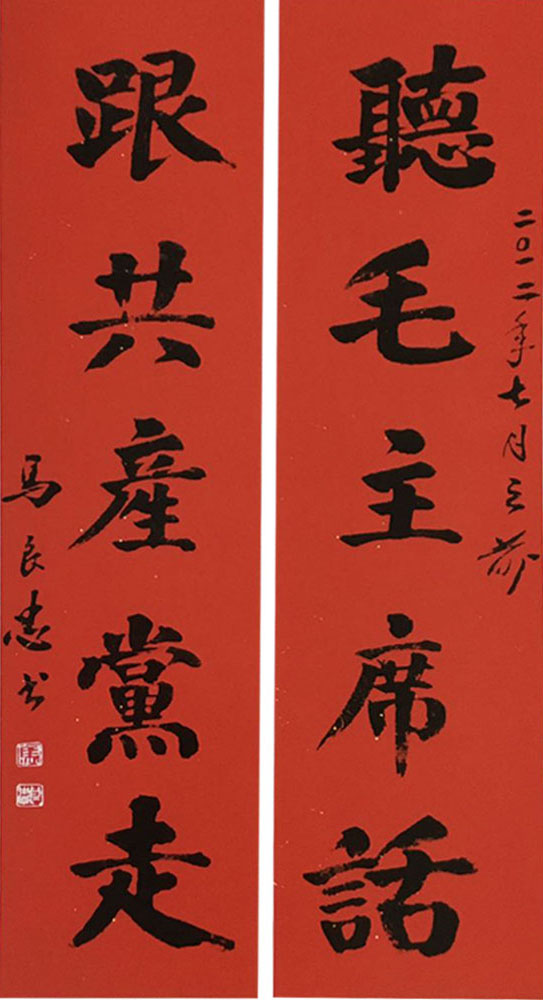 二〇一二年七月之
聽毛主席話
跟共產黨走
馬良忠书